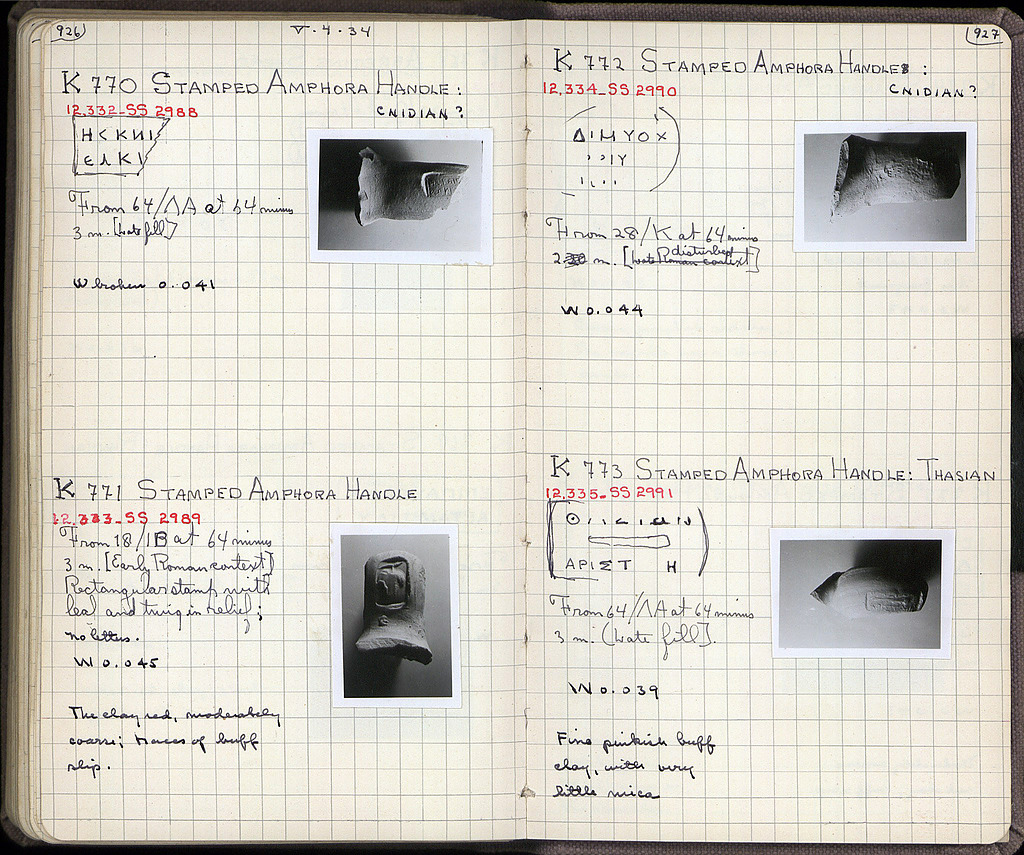 926
V·4·34
K 770 STAMPED AMPHORA HANDLE:
12.332-SS 2988
CNIDIAN?
ΗϹΚΝΙ
ЄΛΚΙ
From 64/ΛΑ at 64 minus
3 m. [Late fill]
W broken 0.041
K 771 STAMPED AMPHORA HANDLE
12.333-SS 2989
From 18/ΙΒ at 64 minus
3 m. [Early Roman context]
Rectangular stamp with
leaf and twig in relief;
no letters.
W 0.045
The clay red, moderately
coarse; traces of buff
slip.
927
K 772 STAMPED AMPHORA HANDLE:
12.334-SS 2990
CNIDIAN?
ΔΙΜΥΟΧ
From 28/K at 64 minus
disturbed
2 m. [Late Roman context]
W 0.044
K 773 STAMPED AMPHORA HANDLE: THASIAN
12.335-SS 2991
ΑΡΙΣΤ Η
From 64/ΛΑ at 64 minus
3 m. (Late fill].
W 0.039
Fine pinkish buff
clay, with very
little mica